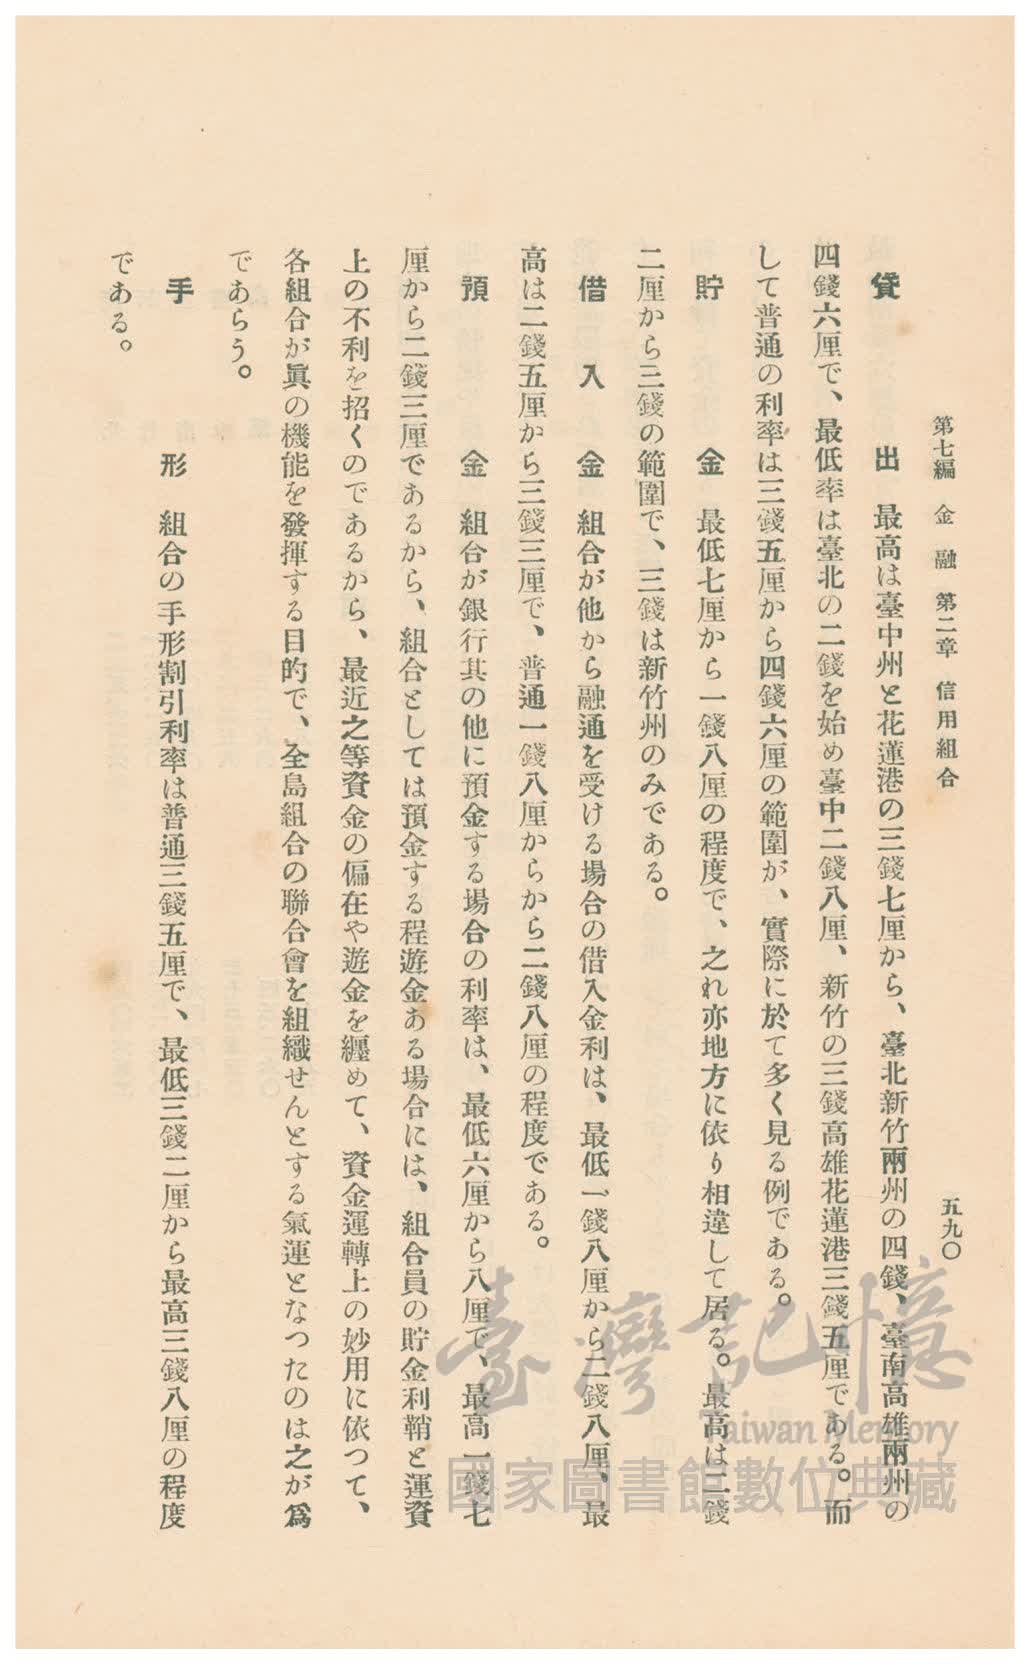 第七編 金融 第二章 信用組合 五九〇
貸出 最高は臺中州と花蓮港の三錢七厘から、臺北新竹兩州の四錢、臺南高雄兩州の
四錢六厘で、最低率は臺北の二錢を始め臺中二錢八厘、新竹の三錢高雄花蓮港三錢五厘である。而
して普通の利率は三錢五厘から四錢六厘の範圍が、實際に於て多く見る例である。
貯金 最低七厘から一錢八厘の程度で、之れ亦地方に依り相違して居る。最高は二錢
二厘から三錢の範圍で、三錢は新竹州のみである。
借入金 組合が他から融通を受ける場合の借入金利は、最低一錢八厘から二錢八厘、最
高は二錢五厘から三錢三厘で、普通一錢八厘からから二錢八厘の程度である。
預金 組合が銀行其の他に預金する場合の利率は、最低六厘から八厘で、最高一錢七
厘から二錢三厘であるから、組合としては預金する程遊金ある場合には、組合員の貯金利鞘と運資
上の不利を招くのであるから、最近之等資金の偏在や遊金を纏めて、資金運轉上の妙用に依つて、
各組合が眞の機能を發揮する目的で、全島組合の聯合會を組織せんとする氣運となつたのは之が爲
であらう。
手形 組合の手形割引利率は普通三錢五厘で、最低三錢二厘から最高三錢八厘の程度
である。
臺灣記憶
Taiwan Memory
國家圖書館數位典藏